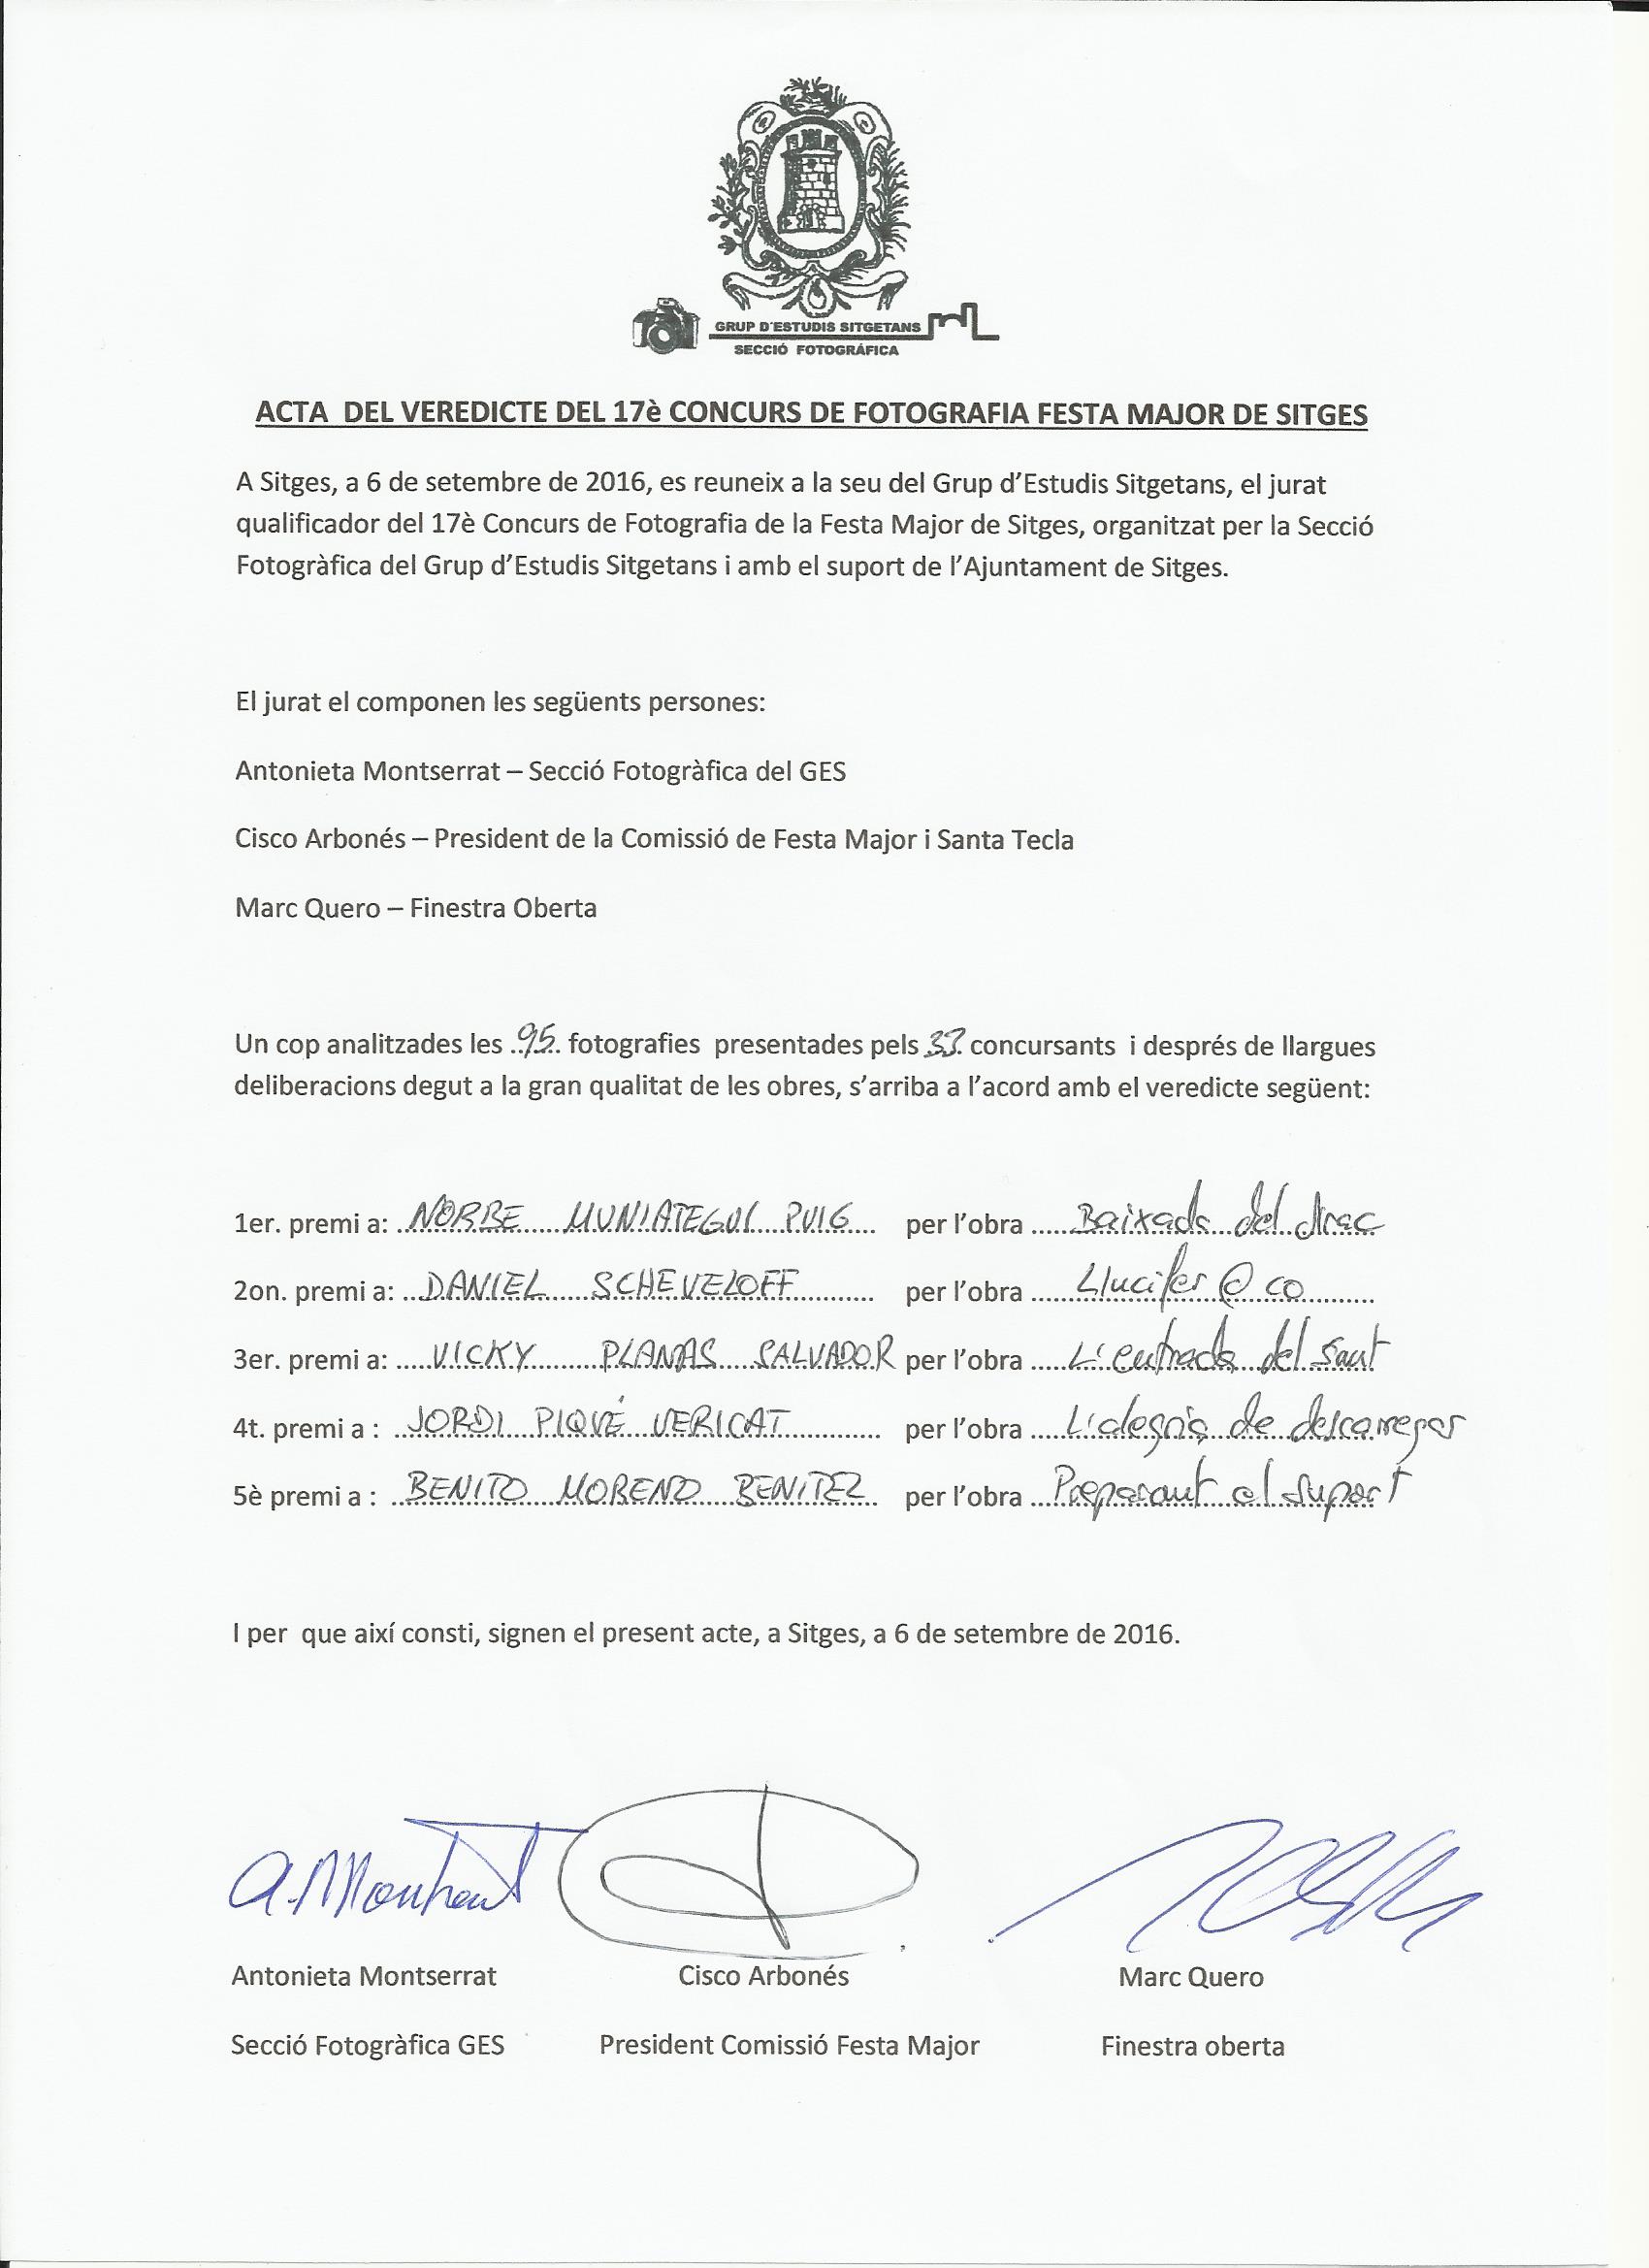 GRUP D'ESTUDIS SITGETANS
SECCIÓ FOTOGRÁFICA
ACTA DEL VEREDICTE DEL 17è CONCURS DE FOTOGRAFIA FESTA MAJOR DE SITGES
A Sitges, a 6 de setembre de 2016, es reuneix a la seu del Grup d'Estudis Sitgetans, el jurat
qualificador del 17è Concurs de Fotografia de la Festa Major de Sitges, organitzat per la Secció
Fotogràfica del Grup d'Estudis Sitgetans i amb el suport de l'Ajuntament de Sitges.
El jurat el componen les següents persones:
Antonieta Montserrat – Secció Fotogràfica del GES
Cisco Arbonés – President de la Comissió de Festa Major i Santa Tecla
Marc Quero – Finestra Oberta
Un cop analitzades les 95 fotografies presentades pels 33 concursants i després de llargues
deliberacions degut a la gran qualitat de les obres, s'arriba a l'acord amb el veredicte següent:
1er. premi a: NORBE MUNIATEGUI PUIG per l'obra Baixada del drac
2on. premi a: DANIEL SCHEVELOFF per l'obra Llucifer @ co
3er. premi a: VICKY PLANAS SALVADOR per l'obra L'entrada del Sant
4t. premi a : JORDI PIQUÉ VERICAT per l'obra L'alegria de descarregar
5è premi a : BENITO MORENO BENITEZ per l'obra Preparant el suport
I per que així consti, signen el present acte, a Sitges, a 6 de setembre de 2016.
Antonieta Montserrat Cisco Arbonés Marc Quero
Secció Fotogràfica GES President Comissió Festa Major Finestra oberta